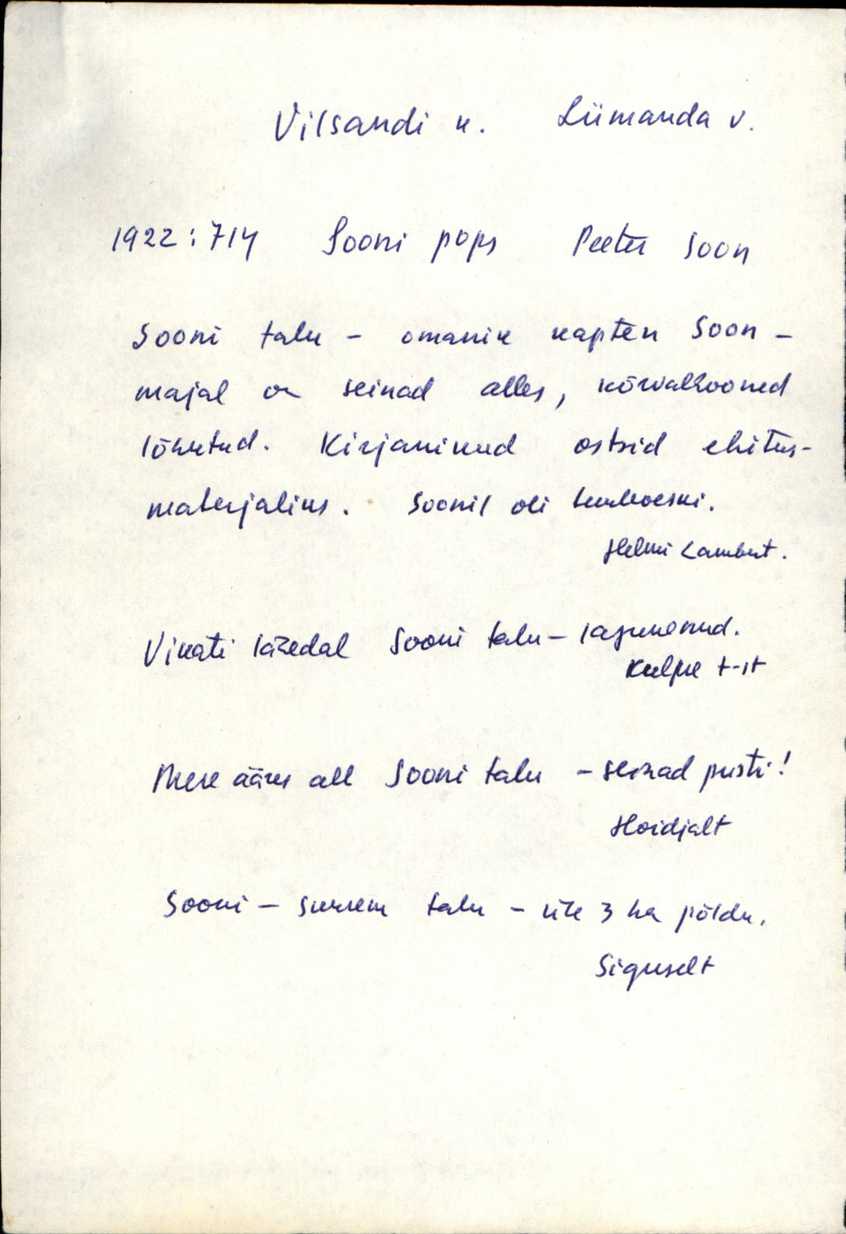 Vilsandi k. Lümanda v.
1922: 714 Sooni pops Peeter Soon
Sooni talu – omanik kapten Soon –
majal on seinad alles, kõrvalhooned
lõhutud. Kirjanikud ostsid ehitus-
materjaliks. Soonil oli tuuleveski.
Helmi Lambut.
Vikati lähedal Sooni talu – lagunenud.
Kulpe t-st
Mere ääres all Sooni talu – seinad püsti!
Hoidjalt
Sooni – suurem talu – üle 3 ha põldu.
Siguselt